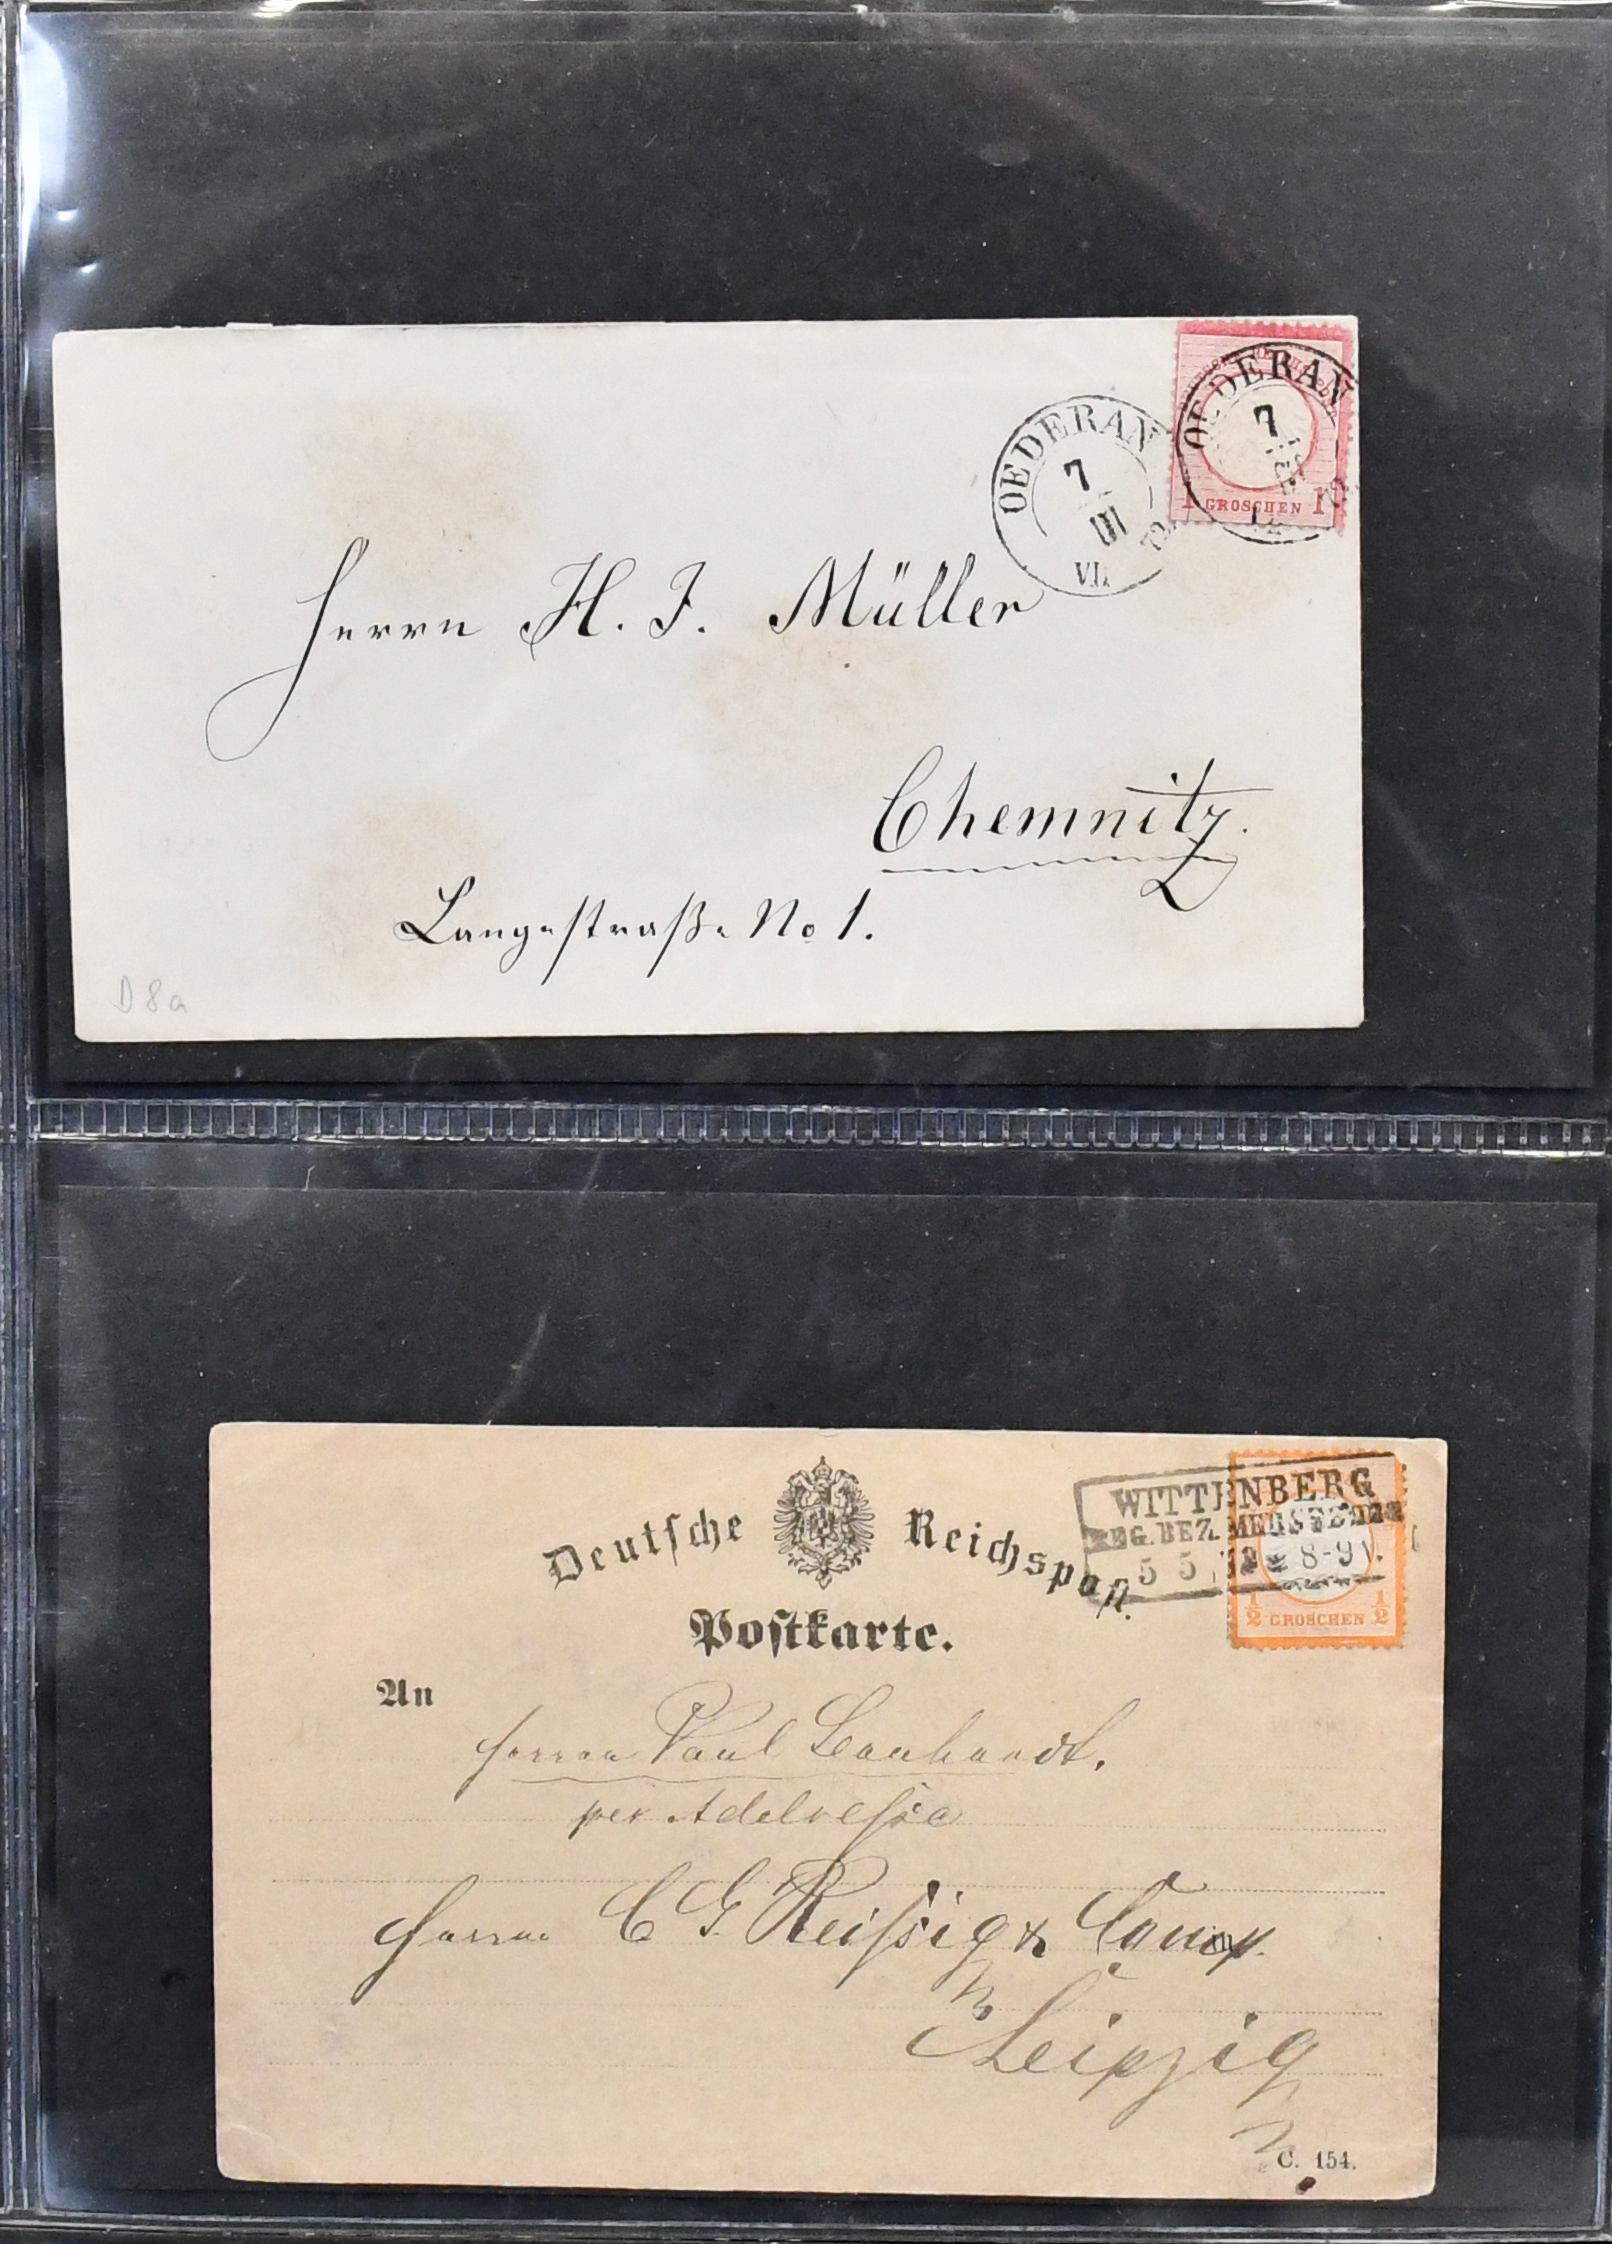 OEDERAN
7
III
VII
OEDERAN
7
1 GROSCHEN 1
Herrn H. J. Müller
Chemnitz.
Langestraße No 1.
D 8a
Deutsche Reichspost.
WITTENBERG
REG. BEZ. MERSEBURG
5 5 8-9 V.
½ GROSCHEN ½
Postkarte.
An
Herren Paul Leonhardt.
per
Herren C G Reissig & Comp.
Leipzig
C. 154.